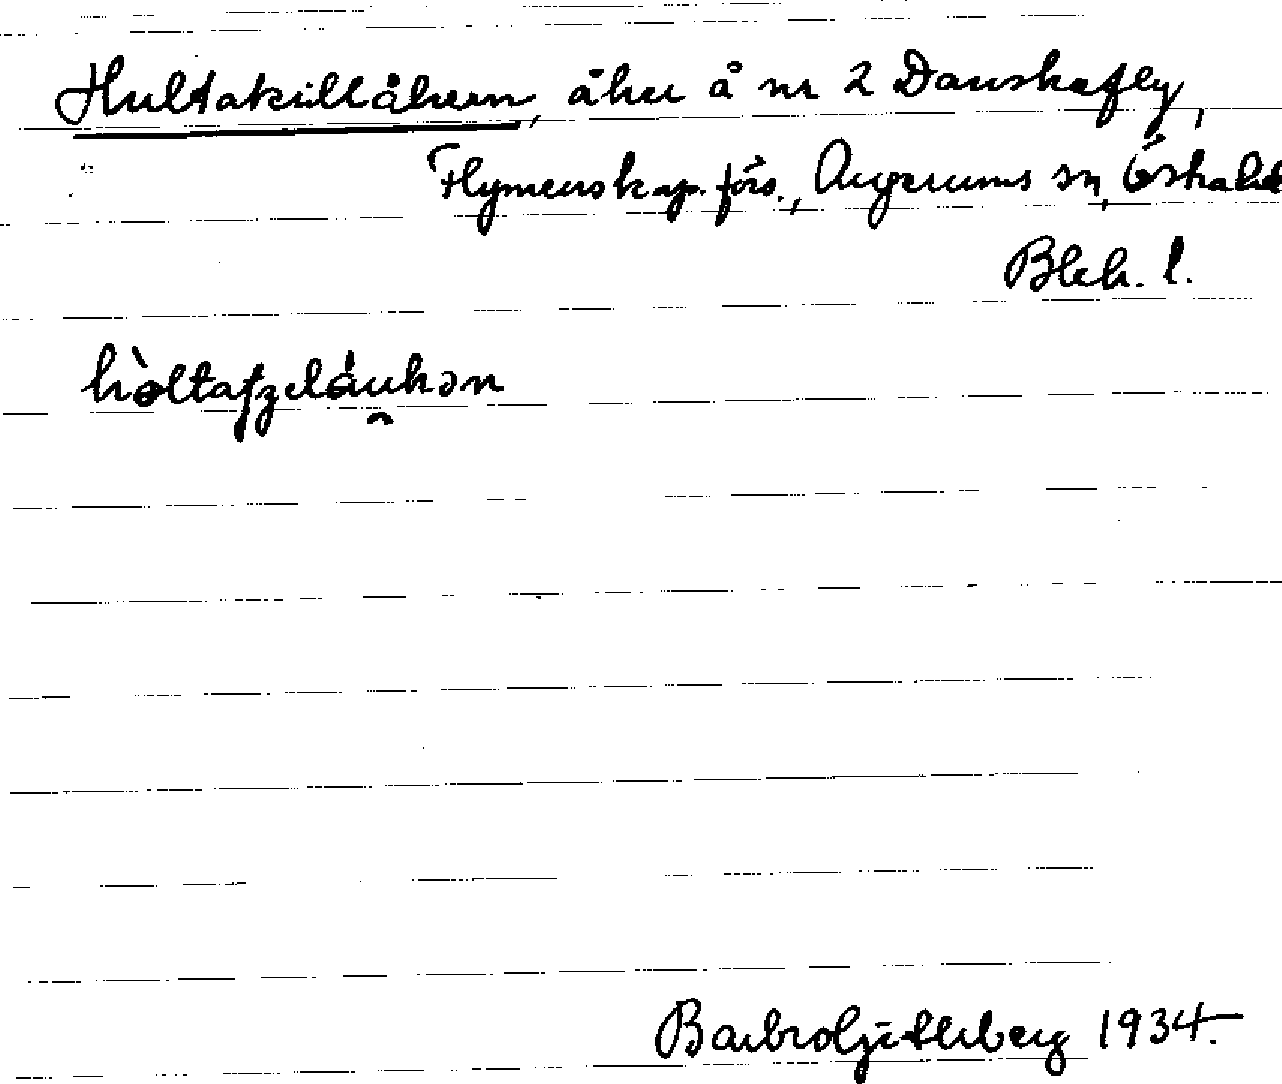 Hultakillåkern, åker å nr 2 Danskafly,
Flymenskap. förs., Augerums sn, Östra hd
Blek. l.
hòltaʃzelåukən
Barbro Söderberg 1934.